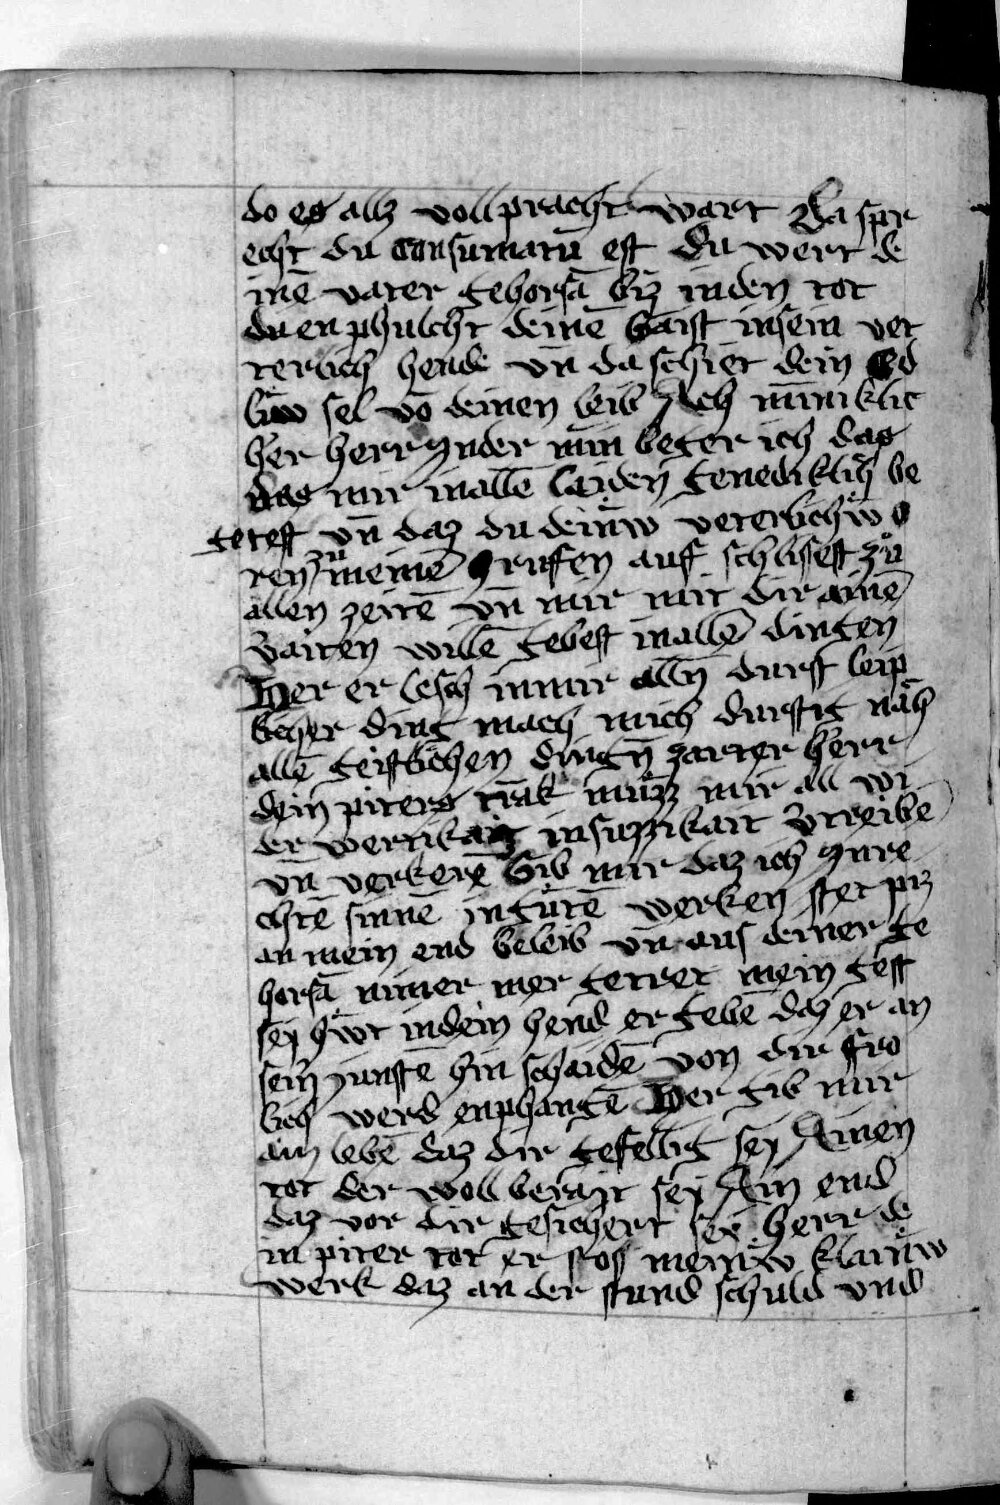 do es allz vollpracht wart Da spr
echt du consumatū est Du wert de
inē vater gehorsā biz in den tot
du enphulcht deinē Gaist in sein vet
terlich hende vn̄ da schiet dein ed
liw sel vō deinen leib Ach miniklic
her herr In der min beger ich das
das mir in allē laiden genediklich be
gegest vn̄ daz du deinͤw veterlichͤw o
ren zu meinē Inrufen auf schlissest zů
allen zeitē vn̄ mir mit dir ainē
willē gebest in allē dingen
Her er lesch in mir allñ durst leip
licher ding mach mich durstig nach
allē geistlichen dingñ zarter herr
dein piters tͣnk muzz mir all wi
der wertikait in suzzikait v̾treibē
vn̄ verkerē Gib mir daz ich In re
chtē sinnē in gutē werken stet piz
an mein end beleib vn̄ aus deiner ge
horsā nimer mer getret mein gest
sey hͤwt in dein hend er geben daz er an
seim Junstē hin schaidē von dir fro
lich werd enphangē Her gib mir
ain lebē daz dir gefellig sey Ainen
tot der woll berait sey Ain end
daz vor dir gesichert sey herr de
in piter tot er stoss meinͤw klainͤw
werk daz an der stund schuld vnd